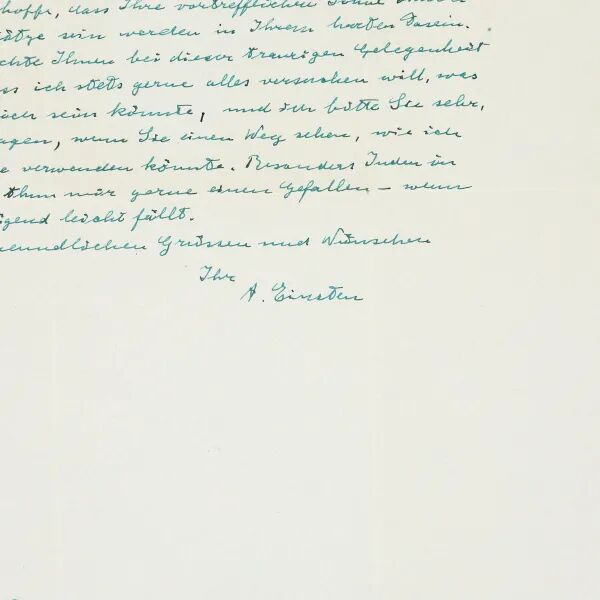 hoffe, dass Ihre vortrefflichen Söhne Ihnen
ätze sein werden in Ihrem harten Dasein.
chte Ihnen bei dieser traurigen Gelegenheit
ss ich stets gerne alles versuchen will, was
sein könnte, und ich bitte Sie sehr,
agen, wenn Sie einen Weg sehen, wie ich
e verwenden könnte. Besonders Juden in
thun mir gerne einen Gefallen – wenn
igend leicht fällt.
reundlichen Grüssen und Wünschen
Ihr
A. Einstein